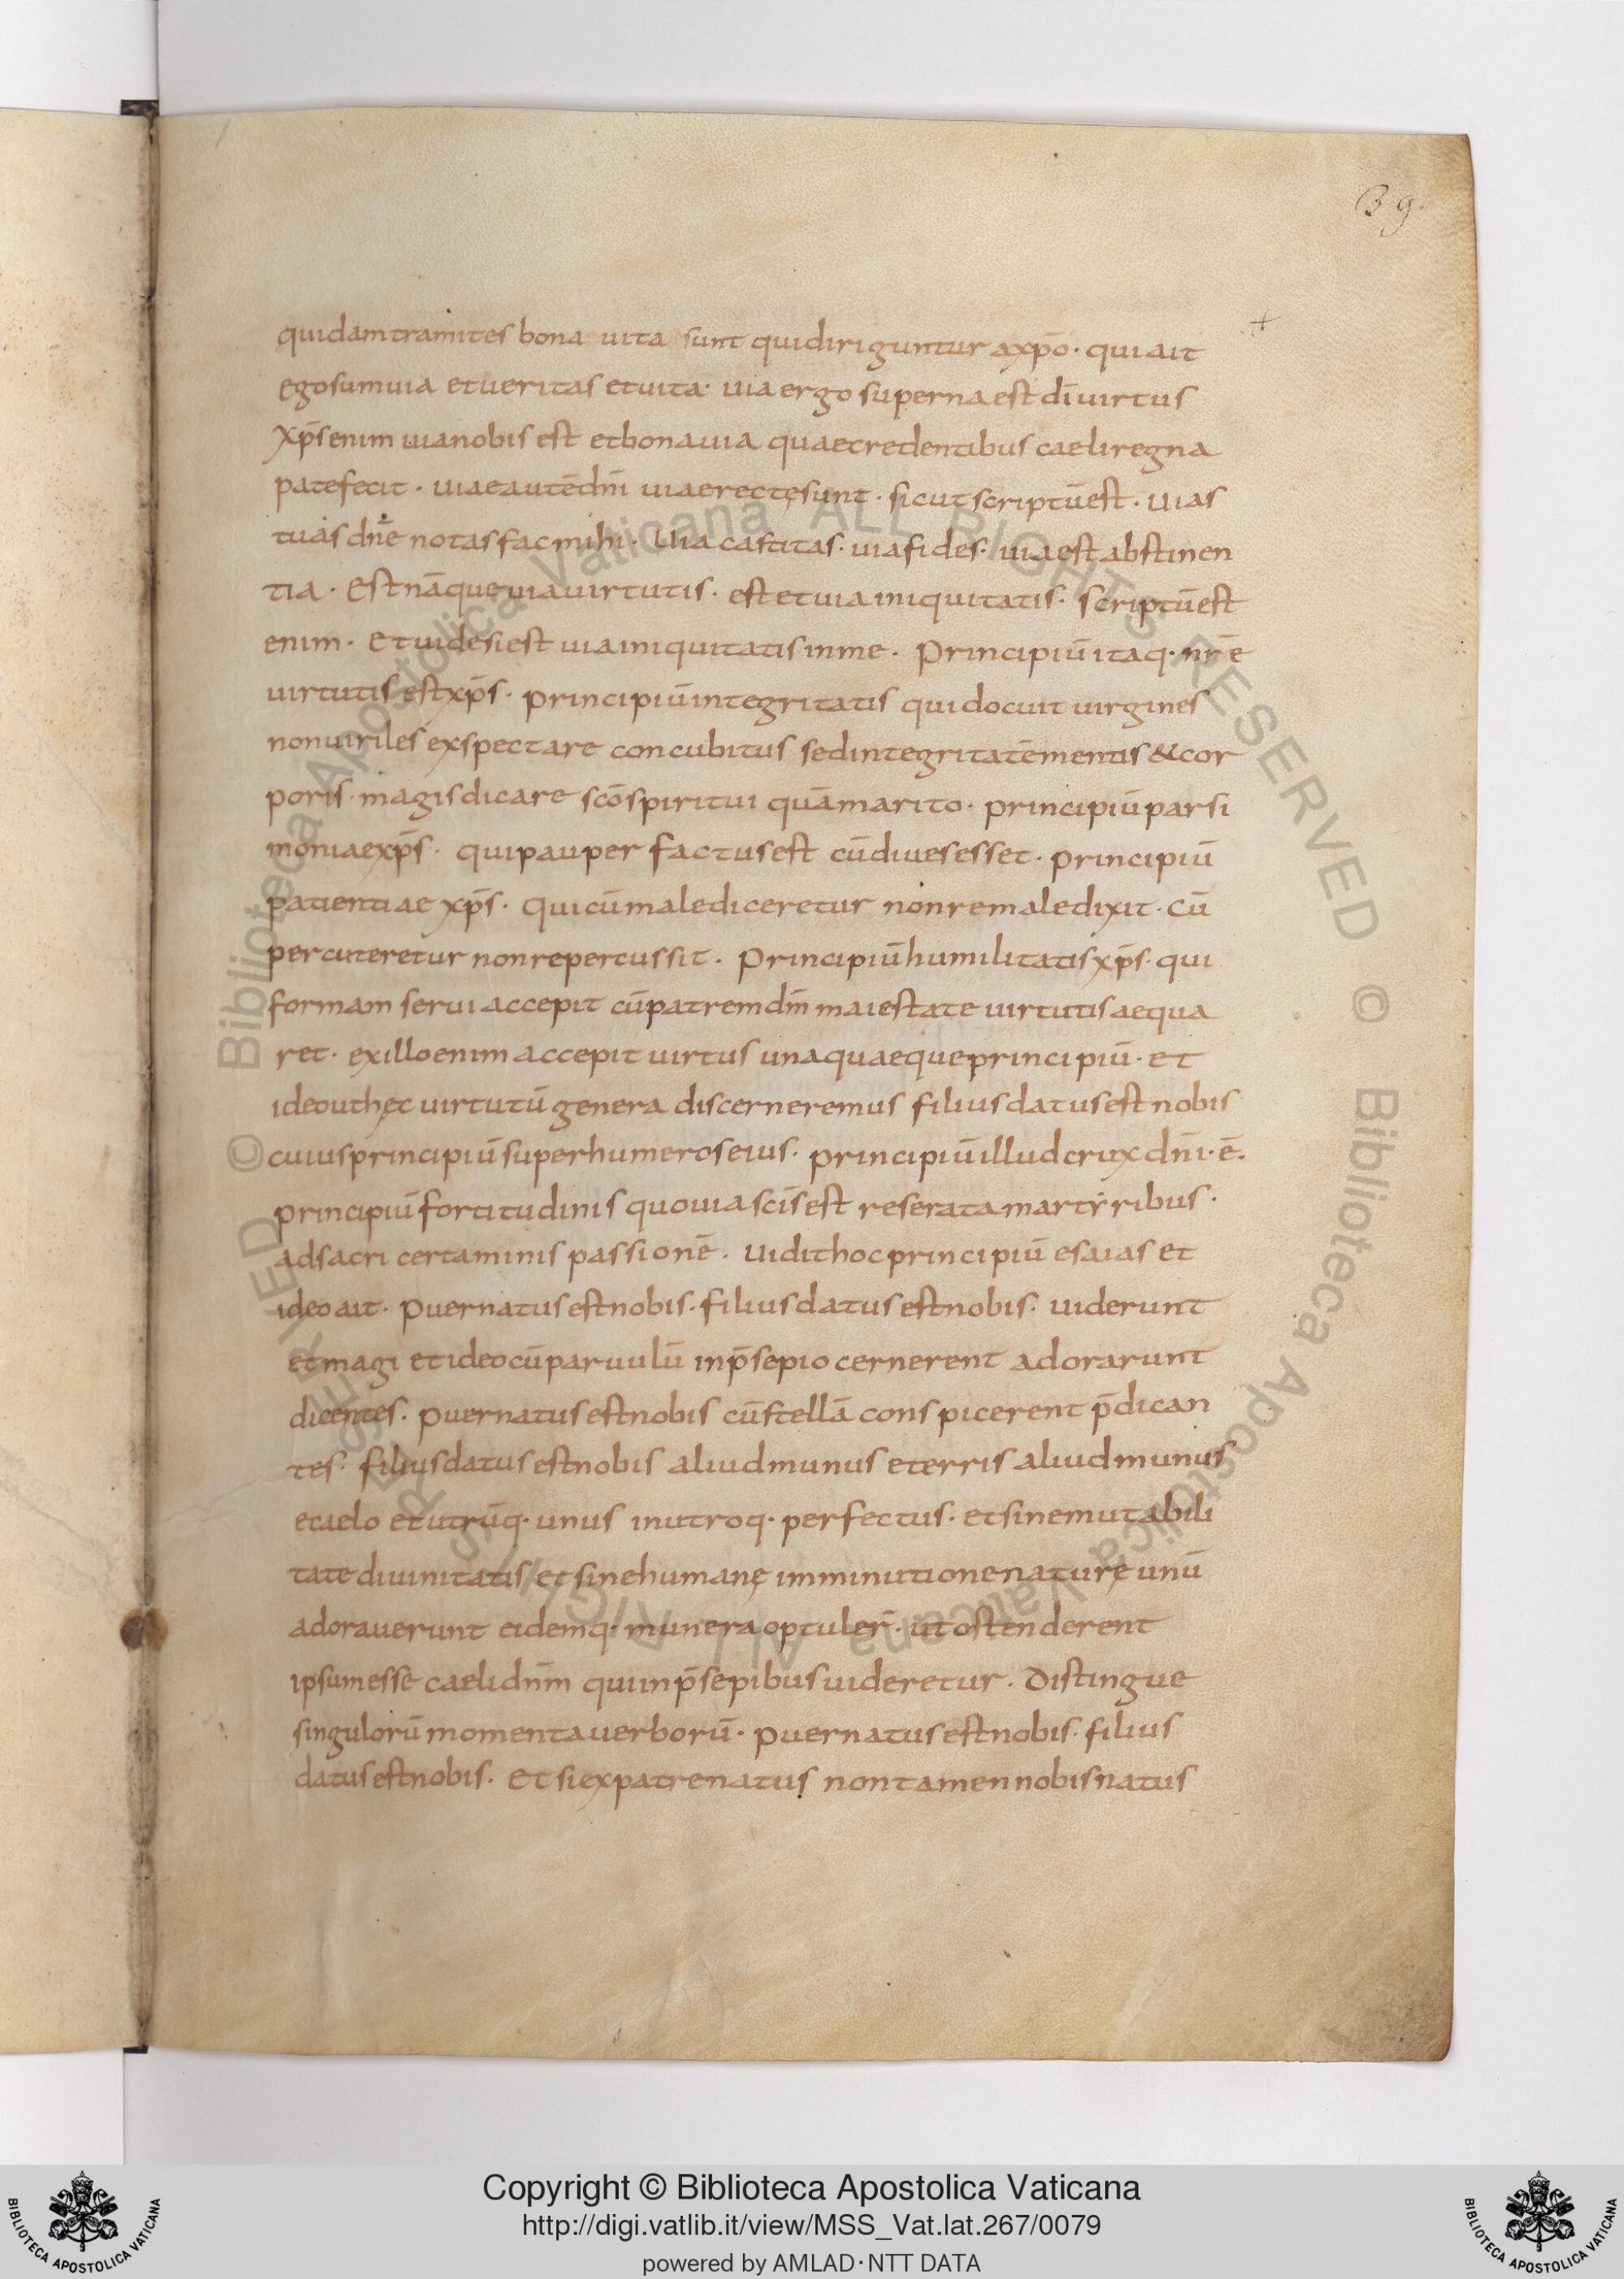 39.
quidam tramites bona uita sunt qui diriguntur a xp̄o · qui ait
ego sum uia et ueritas et uita · uia ergo superna est dī uirtus
xp̄s enim uia nobis est et bona uia quae credentibus caeli regna
patefecit · uiae autē dn̄i uiae rectę sunt · sicut scriptū est · uias
tuas dn̄e notas fac mihi · Uia castitas · uia fides · uia est abstinen
tia · Est nāque uia uirtutis · est et uia iniquitatis · scriptū est
enim · Et uide si est uia iniquitatis in me · Principiū itaq· nr̄ē
uirtutis est xp̄s · principiū integritatis qui docuit uirgines
non uiriles exspectare concubitus sed integritatē mentis & cor
poris · magis dicare sc̄o spiritui quā marito · principiū parsi
moniae xp̄s · qui pauper factus est cū diues esset · principiū
patientiae xp̄s · qui cū malediceretur non remaledixit · cū
percuteretur non repercussit · Principiū humilitatis xp̄s · qui
formam serui accepit cū patrem dm̄ maiestate uirtutis aequa
ret · ex illo enim accepit uirtus unaquaeque principiū · et
ideo ut hęc uirtutū genera discerneremus filius datus est nobis
cuius principiū super humeros eius · principiū illud crux dn̄i · ē ·
principiū fortitudinis quo uia sc̄is est reserata martyribus ·
ad sacri certaminis passionē · uidit hoc principiū esaias et
ideo ait · Puer natus est nobis · filius datus est nobis · uiderunt
et magi et ideo cū paruulū in p̄sepio cernerent adorarunt
dicentes · Puer natus est nobis cū stellā conspicerent p̄dican
tes · filius datus est nobis aliud munus e terris aliud munus
e caelo et utrūq· unus in utroq· perfectus · et sine mutabili
tate diuinitatis et sine humanę imminutione naturę unū
adorauerunt eidemq· munera optuler̄ · ut ostenderent
ipsum esse caeli dn̄m qui in p̄sepibus uideretur · Distingue
singulorū momenta uerborū · Puer natus est nobis · filius
datus est nobis · Et si ex patre natus non tamen nobis natus
Copyright © Biblioteca Apostolica Vaticana
http://digi.vatlib.it/view/MSS_Vat.lat.267/0079
powered by AMLAD·NTT DATA
BIBLIOTECA APOSTOLICA VATICANA
BIBLIOTECA APOSTOLICA VATICANA
© Biblioteca Apostolica Vaticana ALL RIGHTS RESERVED © Biblioteca Apostolica Vaticana ALL RIGHTS RESERVED